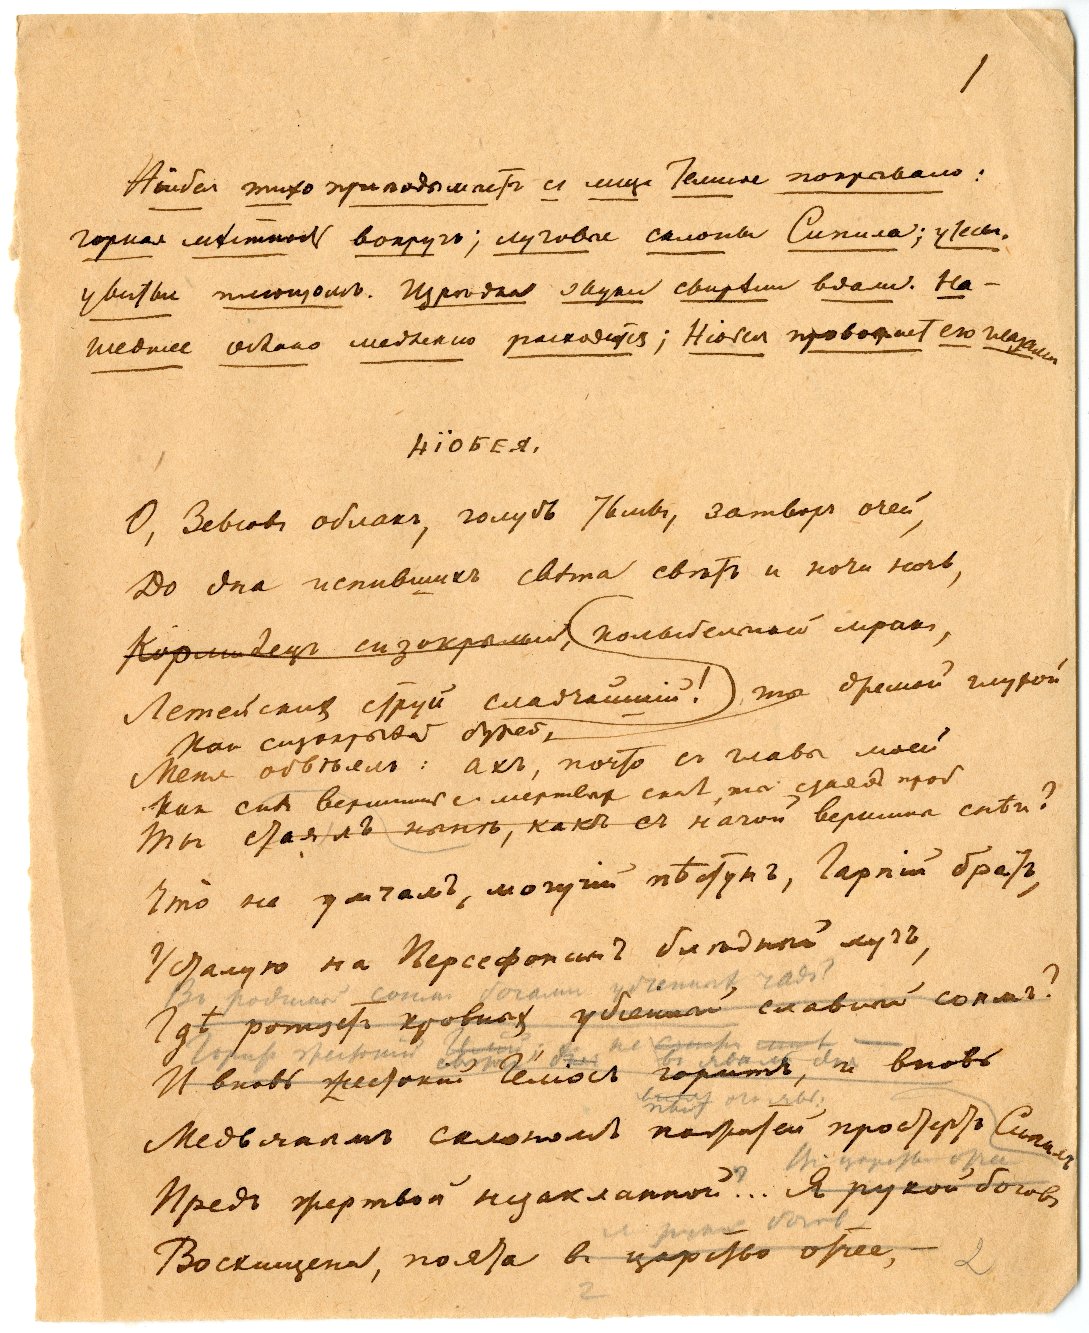 1
Ніобея тихо приподымаетъ съ лица темное покрывало:
горная мѣстность вокругъ; луговые склоны Сипила; утесы,
увитые плющомъ. Изрѣдка звуки свирѣли вдали. На-
шедшее облако медленно расходится; Ніобея провожаетъ его глазами
НІОБЕЯ.
О, Зевсовъ облакъ, голубь тьмы, затворъ очей,
До дна испившихъ свѣта свѣтъ и ночи ночь,
Кормилецъ сизокрылый, колыбельный мракъ,
Летейскихъ струй сладчайшій! ты дремой глухой
Какъ сизокрылой бурей,
Меня обвѣялъ: ахъ, почто съ главы моей
Какъ снѣгъ вершины с мертвыхъ скалъ, ты стаялъ прочь
Ты стаялъ нынѣ, какъ съ нагой вершины снѣгъ?
Что не умчалъ, могучій пѣстунъ, Гарпій братъ,
Усталую на Персефонинъ блѣдный лугъ,
Въ родимый сонмъ богами убіенныхъ чадъ?
Гдѣ ропщетъ кровныхъ убіенный славный сонмъ?
И вновь жестокій Геліосъ горитъ, и вновь
Медвянымъ склономъ пастбищ простертъ Сипилъ
Предъ жертвой незакланной... Я рукой боговъ
Въ царство отчее
я рукой боговъ
Восхищена, поята въ царство отчее, –
2
2